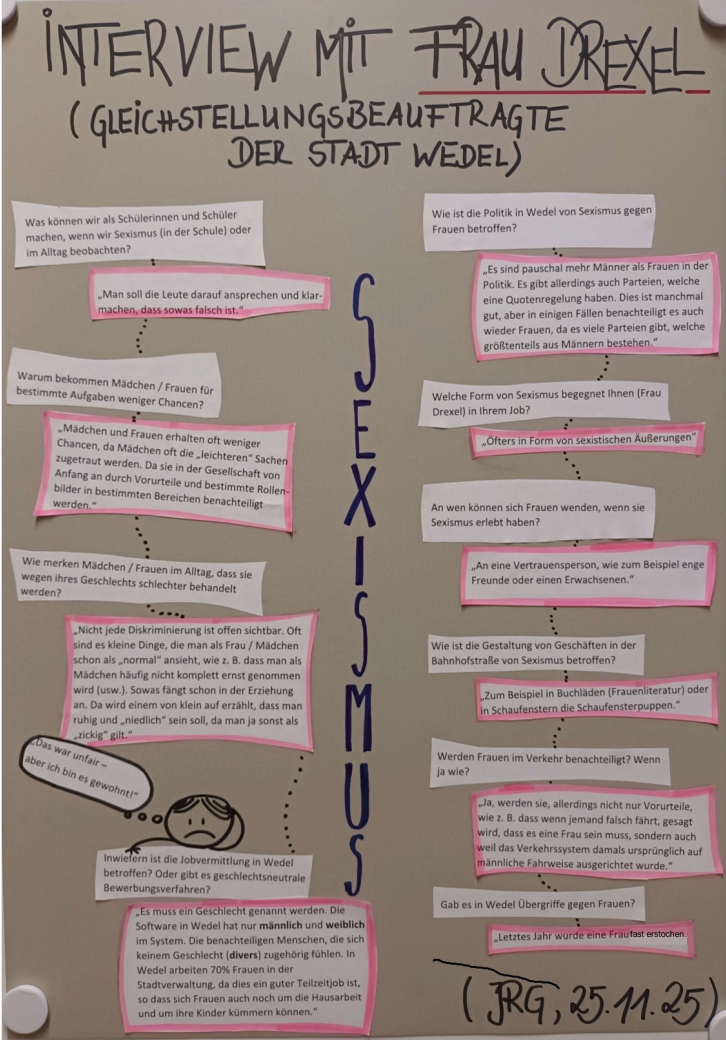 INTERVIEW MIT FRAU DREXEL
(GLEICHSTELLUNGSBEAUFTRAGTE
DER STADT WEDEL)
Was können wir als Schülerinnen und Schüler
machen, wenn wir Sexismus (in der Schule) oder
im Alltag beobachten?
„Man soll die Leute darauf ansprechen und klar-
machen, dass sowas falsch ist.“
Warum bekommen Mädchen / Frauen für
bestimmte Aufgaben weniger Chancen?
„Mädchen und Frauen erhalten oft weniger
Chancen, da Mädchen oft die „leichteren“ Sachen
zugetraut werden. Da sie in der Gesellschaft von
Anfang an durch Vorurteile und bestimmte Rollen-
bilder in bestimmten Bereichen benachteiligt
werden.“
Wie merken Mädchen / Frauen im Alltag, dass sie
wegen ihres Geschlechts schlechter behandelt
werden?
„Nicht jede Diskriminierung ist offen sichtbar. Oft
sind es kleine Dinge, die man als Frau / Mädchen
schon als „normal“ ansieht, wie z. B. dass man als
Mädchen häufig nicht komplett ernst genommen
wird (usw.). Sowas fängt schon in der Erziehung
an. Da wird einem von klein auf erzählt, dass man
ruhig und „niedlich“ sein soll, da man ja sonst als
„zickig“ gilt.“
„Das war unfair –
aber ich bin es gewohnt!“
Inwiefern ist die Jobvermittlung in Wedel
betroffen? Oder gibt es geschlechtsneutrale
Bewerbungsverfahren?
„Es muss ein Geschlecht genannt werden. Die
Software in Wedel hat nur männlich und weiblich
im System. Die benachteiligen Menschen, die sich
keinem Geschlecht (divers) zugehörig fühlen. In
Wedel arbeiten 70% Frauen in der
Stadtverwaltung, da dies ein guter Teilzeitjob ist,
so dass sich Frauen auch noch um die Hausarbeit
und um ihre Kinder kümmern können.“
SEXISMUS
Wie ist die Politik in Wedel von Sexismus gegen
Frauen betroffen?
„Es sind pauschal mehr Männer als Frauen in der
Politik. Es gibt allerdings auch Parteien, welche
eine Quotenregelung haben. Dies ist manchmal
gut, aber in einigen Fällen benachteiligt es auch
wieder Frauen, da es viele Parteien gibt, welche
größtenteils aus Männern bestehen.“
Welche Form von Sexismus begegnet Ihnen (Frau
Drexel) in Ihrem Job?
„Öfters in Form von sexistischen Äußerungen“
An wen können sich Frauen wenden, wenn sie
Sexismus erlebt haben?
„An eine Vertrauensperson, wie zum Beispiel enge
Freunde oder einen Erwachsenen.“
Wie ist die Gestaltung von Geschäften in der
Bahnhofstraße von Sexismus betroffen?
„Zum Beispiel in Buchläden (Frauenliteratur) oder
in Schaufenstern die Schaufensterpuppen.“
Werden Frauen im Verkehr benachteiligt? Wenn
ja wie?
„Ja, werden sie, allerdings nicht nur Vorurteile,
wie z. B. dass wenn jemand falsch fährt, gesagt
wird, dass es eine Frau sein muss, sondern auch
weil das Verkehrssystem damals ursprünglich auf
männliche Fahrweise ausgerichtet wurde.“
Gab es in Wedel Übergriffe gegen Frauen?
„Letztes Jahr wurde eine Frau fast erstochen.
(JRG, 25.11.25)